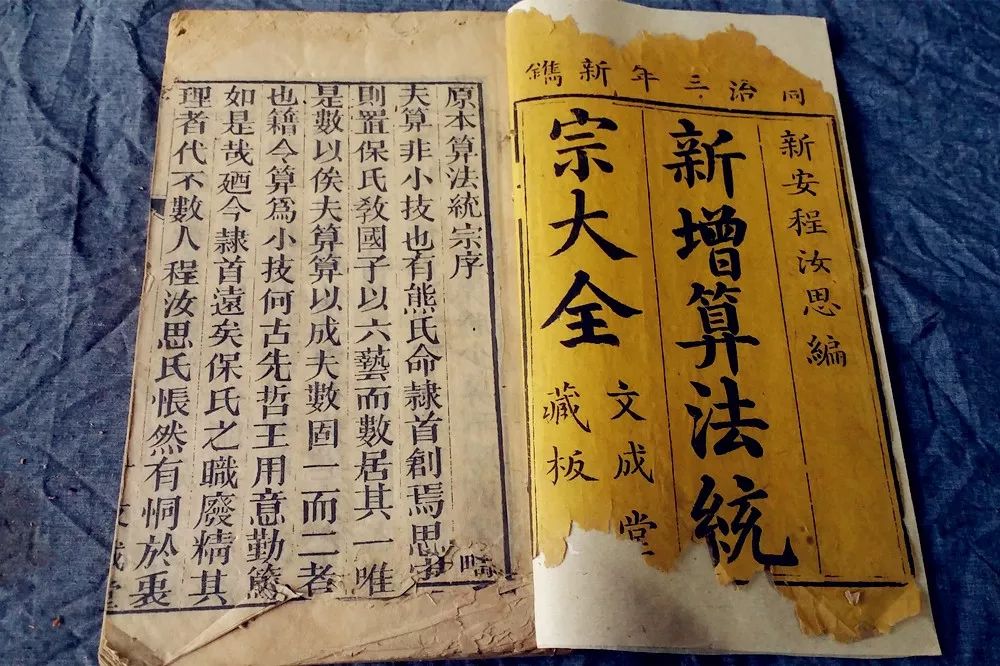 同治三年新鐫
新安程汝思編
新增算法統
宗大全
文成堂
藏板
原本算法統宗序
夫算非小技也有熊氏命隸首創焉思
則置保氏敎國子以六藝而數居其一唯
是數以俟夫算算以成夫數固一而二者
也籍令算爲小技何古先哲王用意勤篤
如是哉廼今隸首遠矣保氏之職廢精其
理者代不數人程汝思氏悵然有恫於衷